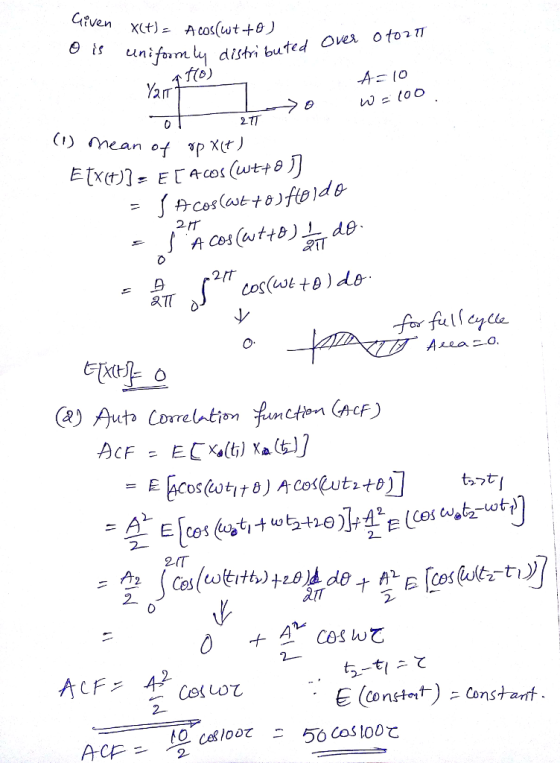 Given X(t) = A cos(ωt + θ)
θ is uniformly distributed over 0 to 2π
f(θ)
1/2π
0 2π θ
A = 10
ω = 100.
(1) Mean of rp X(t)
E[X(t)] = E[A cos(ωt + θ)]
= ∫ A cos(ωt + θ) f(θ) dθ
= ∫₀^2π A cos(ωt + θ) 1/2π dθ.
= A/2π ₀∫^2π cos(ωt + θ) dθ.
↓
0.
for full cycle
Area = 0.
E[X(t)] = 0
(2) Auto Correlation function (ACF)
ACF = E[X(t₁) X(t₂)]
= E[A cos(ωt₁ + θ) A cos(ωt₂ + θ)] t₂>t₁
= A²/2 E[cos(ω₀t₁ + ωt₂ + 2θ)] + A²/2 E(cos ω₀t₂ - ωt₁)]
= A2/2 ∫₀^2π cos(ω(t₁+t₂) + 2θ) 1/2π dθ + A²/2 E[cos(ω(t₂ - t₁))]
↓
= 0 + A²/2 cos ωτ
t₂ - t₁ = τ
ACF = A²/2 cos ωτ ∵ E(constant) = constant.
ACF = 10/2 cos100τ = 50 cos100τ